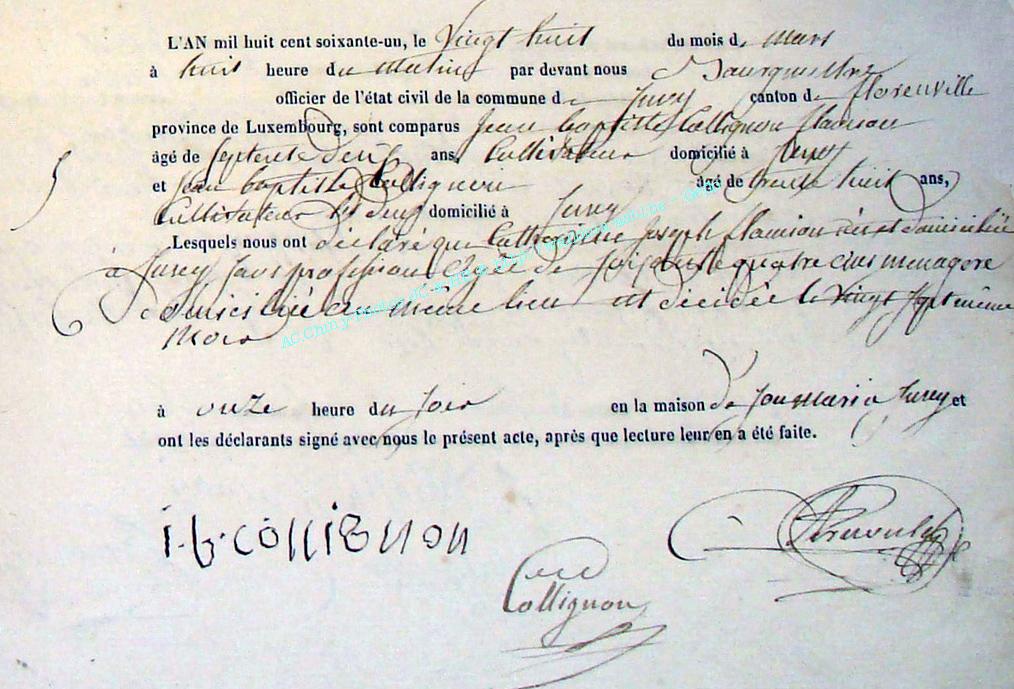 L'AN mil huit cent soixante-un, le Vingt huit du mois de mars
à huit heure du matin par devant nous Bourgmestre
officier de l'état civil de la commune de Jurey canton de florenville
province de Luxembourg, sont comparus Jean baptiste Collignon flamion
âgé de ans, Cultivateur domicilié à Jurey
et Jean baptiste Collignon âgé de trente huit ans,
Cultivateur les deux domicilié à Jurey
Lesquels nous ont déclaré que Catherine Joseph flamion et domiciliée
à Jurey sans profession agée de soisante quatre ans menagere
domiciliée au même lieu est décédée le vingt sept même
mois
à onze heure du soir en la maison de son maria Jurey et
ont les déclarants signé avec nous le présent acte, après que lecture leur en a été faite.
j.b.collignon
Collignon